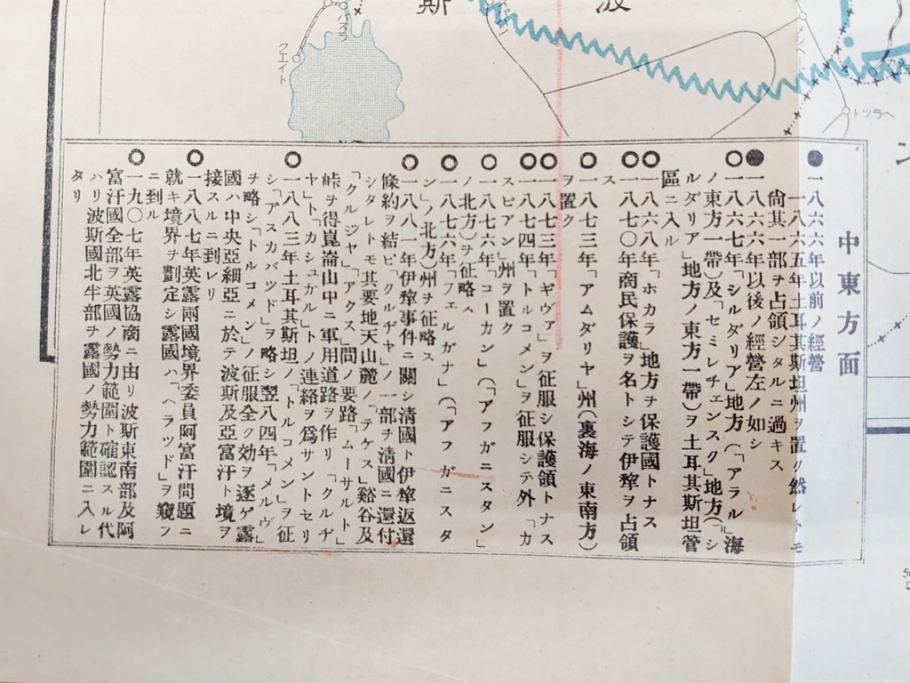 斯
波
バスラ
クエイト
ヘラツト
ン
中東方面
●一八六六年以前ノ經營
一八六五年土耳其斯坦州ヲ置ク然レトモ
尙其一部ヲ占領シタルニ過キス
●一八六六年以後ノ經營左ノ如シ
○一八六七年「シルダリア」地方(「アラル」海
ノ東方一帶)及「セミレチェンスク」地方(「シ
ルダリア」地方ノ東方一帶)ヲ土耳其斯坦管
區ニ入ル
○一八六八年「ホカラ」地方ヲ保護國トナス
○一八七〇年商民保護ヲ名トシテ伊犂ヲ占領
ス
○一八七三年「アムダリヤ」州(裏海ノ東南方)
ヲ置ク
○一八七三年「ギヴァ」ヲ征服シ保護領トナス
○一八七四年「トルコメン」ヲ征服シテ外「カ
スピアン」州ヲ置ク
○一八七六年「コーカン」(「アフガニスタン」
ノ北方)ヲ征略ス
○一八七六年「フェルガナ」(「アフガニスタ
ン」ノ北方)州ヲ征略ス
○一八八一年伊犂事件ニ關シ淸國ト伊犂返還
條約ヲ結ビ「クルヂヤ」ノ一部ヲ淸國ニ還付
シタレトモ其要地天山麓ノ「テケス」谿谷及
「クルジヤ」「アクス」間ノ要路「ムーサルト」
峠ヲ得崑崙山中ニ軍用道路ヲ作リ「クルヂ
ヤ」ト「カシュガル」トノ連絡ヲ爲サントセリ
○一八八三年土耳其斯坦ノ「トルコメン」ヲ征
シ「アスカバツド」ヲ略シ翌八四年「メルヴ」
ヲ略シ「トルコメン」ノ征服全ク効ヲ遂ゲ露
國ハ中央亞細亞ニ於テ波斯及亞富汗ト境ヲ
接スルニ到レリ
○一八八七年英露兩國境界委員阿富汗問題ニ
就キ境界ヲ劃定シ露國ハ「ヘラツド」ヲ窺フ
ニ到ル
○一九〇七年英露協商ニ由リ波斯東南部及阿
富汗國全部ヲ英國ノ勢力範圍ト確認スル代
ハリ波斯國北半部ヲ露國ノ勢力範圍ニ入レ
タリ